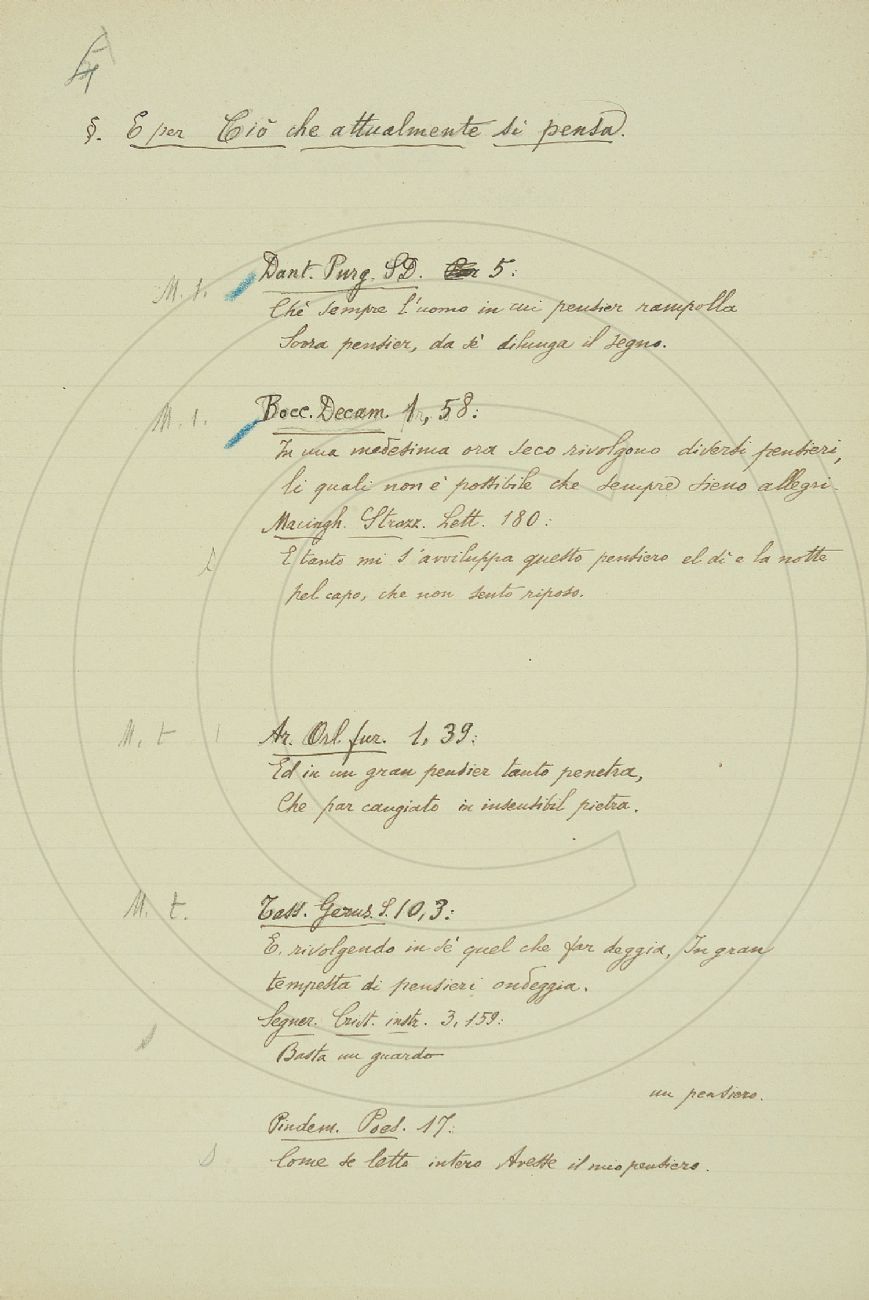 §. E per Ciò che attualmente si pensa.
M. 1. Dant. Purg. 5:
Chè sempre l'uomo in cui pensier rampolla
Sovra pensier, da sè dilunga il segno.
M. 1. Bocc. Decam. 1, 58:
In una medesima ora seco rivolgono diversi pensieri,
li quali non è possibile che sempre sieno allegri.
Macingh. Strozz. Lett. 180:
E tanto mi s'avviluppa questo pensiero el dì e la notte
pel capo, che non sento riposo.
M. t Ar. Orl. fur. 1, 39:
Ed in un gran pensier tanto penetra,
Che par cangiato in insensibil pietra.
M. t. Tass. Gerus. S. 10, 3:
E, rivolgendo in sè quel che far deggia, In gran
tempesta di pensieri ondeggia.
Segner. Crist. instr. 3, 159:
Basta un guardo
un pensiero.
Pindem. Poes. 17:
Come se letto intero Avesse il mio pensiero.